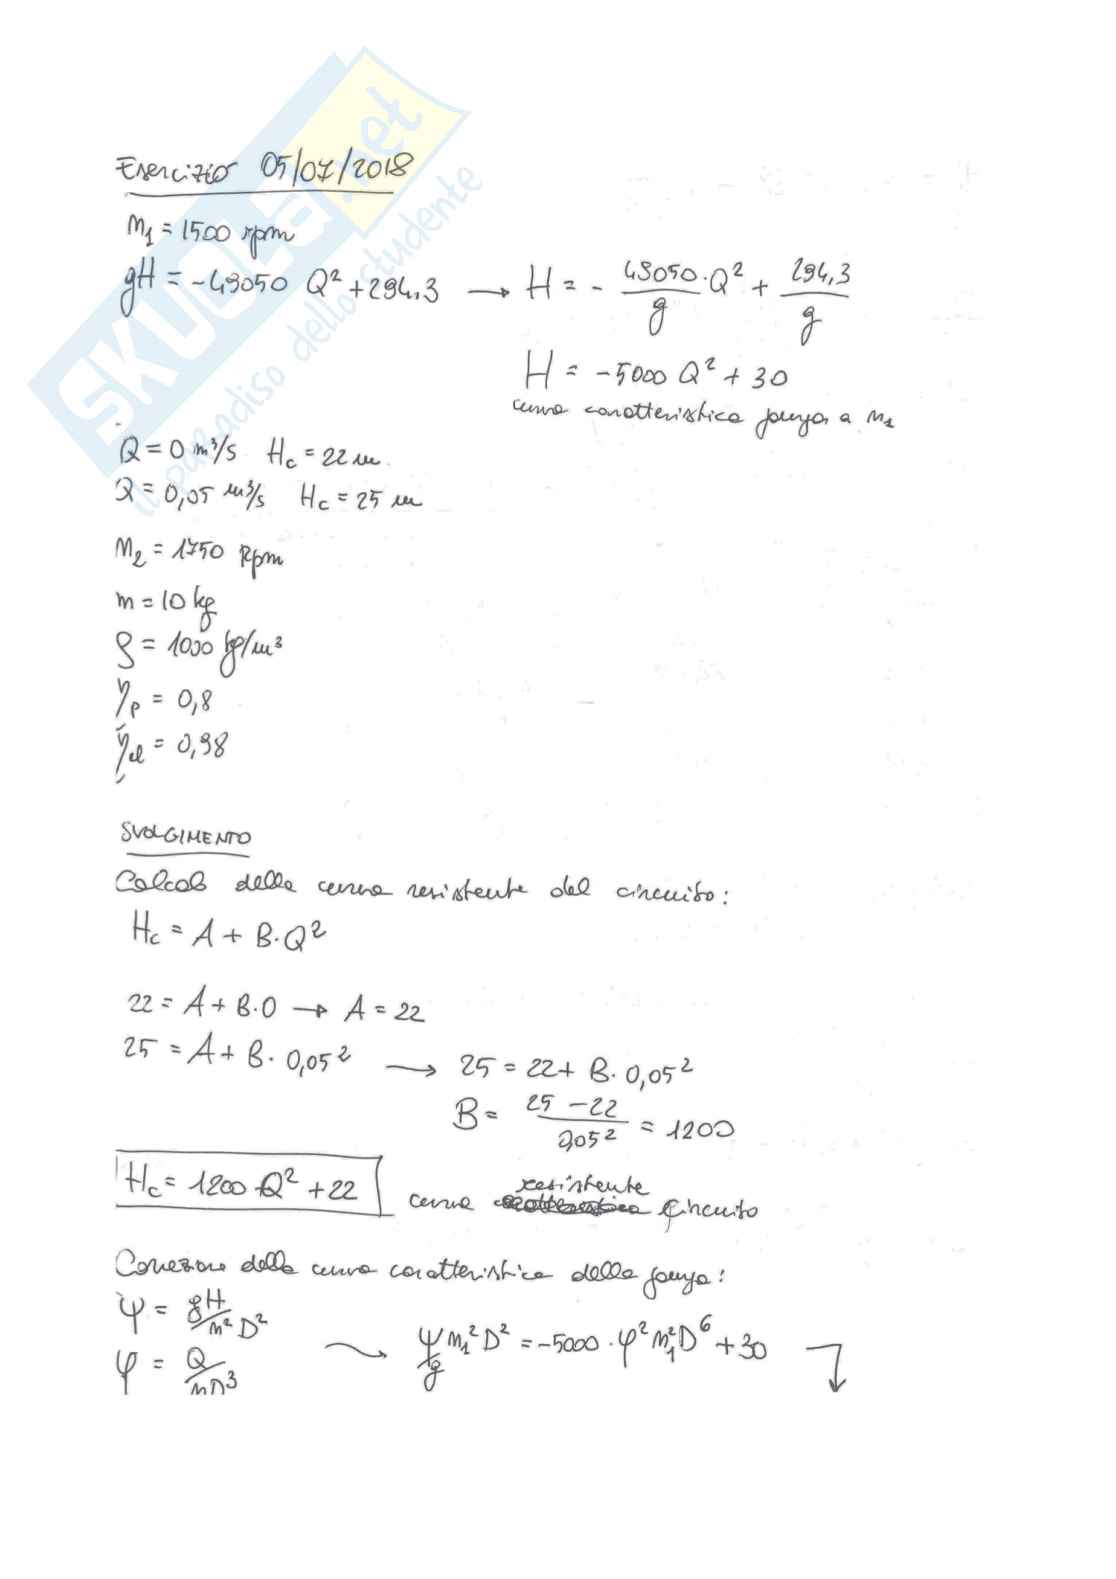 SKUOLA.net
il paradiso dello studente
Esercizio 05/07/2018
n₁ = 1500 rpm
gH = -49050 Q² + 294,3 → H = - 49050·Q²/g + 294,3/g
H = -5000 Q² + 30
curva caratteristica pompa a n₁
Q = 0 m³/s H_c = 22 m
Q = 0,05 m³/s H_c = 25 m
n₂ = 1750 Rpm
m = 10 kg
ρ = 1000 kg/m³
η_p = 0,8
η_el = 0,98
SVOLGIMENTO
Calcolo della curva resistente del circuito:
H_c = A + B·Q²
22 = A + B·0 → A = 22
25 = A + B·0,05² → 25 = 22 + B·0,05²
B = (25 - 22)/0,05² = 1200
H_c = 1200 Q² + 22 curva resistente circuito
Correzione della curva caratteristica della pompa:
ψ = gH/n²D²
φ = Q/nD³ → ψ/g n₁²D² = -5000·φ²n₁²D⁶ + 30